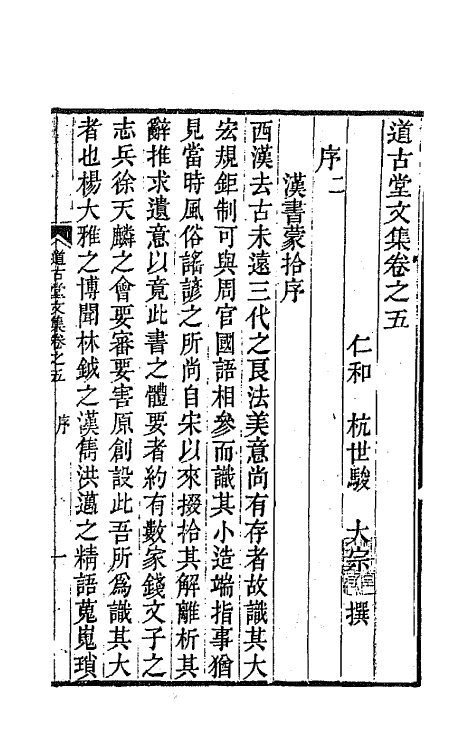 道古堂文集卷之五
仁和 杭世駿 大宗 撰
序二
漢書蒙拾序
西漢去古未遠三代之良法美意尚有存者故識其大
宏規鉅制可與周官國語相參而識其小造端指事猶
見當時風俗謠諺之所尚自宋以來掇拾其解離析其
辭推求遺意以竟此書之體要者約有數家錢文子之
志兵徐天麟之會要審要害原創設此吾所爲識其大
者也楊大雅之博聞林鉞之漢雋洪邁之精語蒐嵬瑣
道古堂文集卷之五 序 一